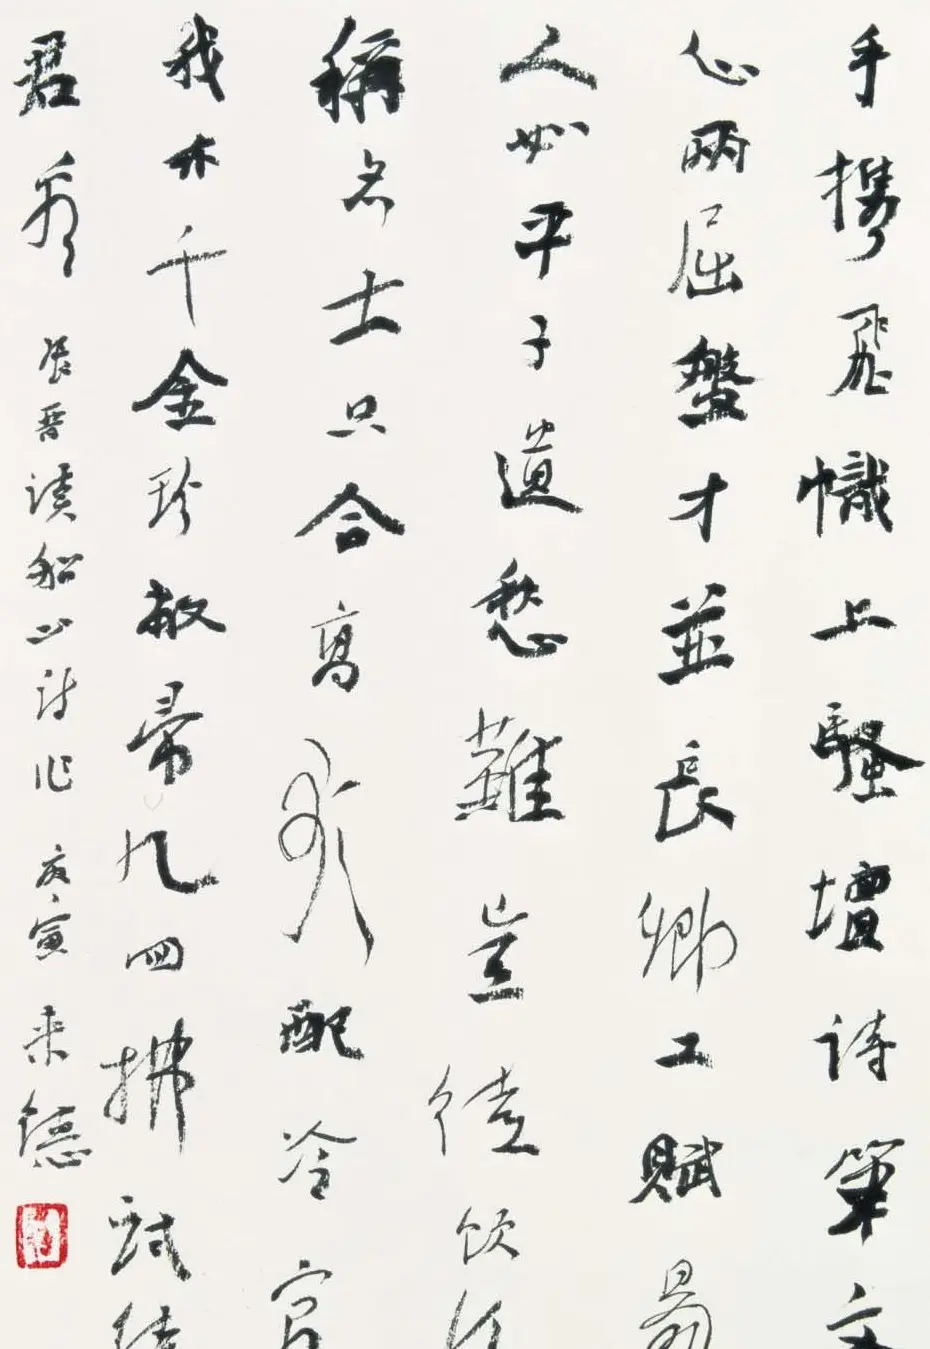 手携飛幟上騷壇詩筆文
心兩屈盤才並長卿工賦易
人如平子道愁難豈徒飲
稱名士只合高吟配冷官
我亦千金珍敝帚几四拂拭
君看
張晉讀船山詩作
庚寅
来德